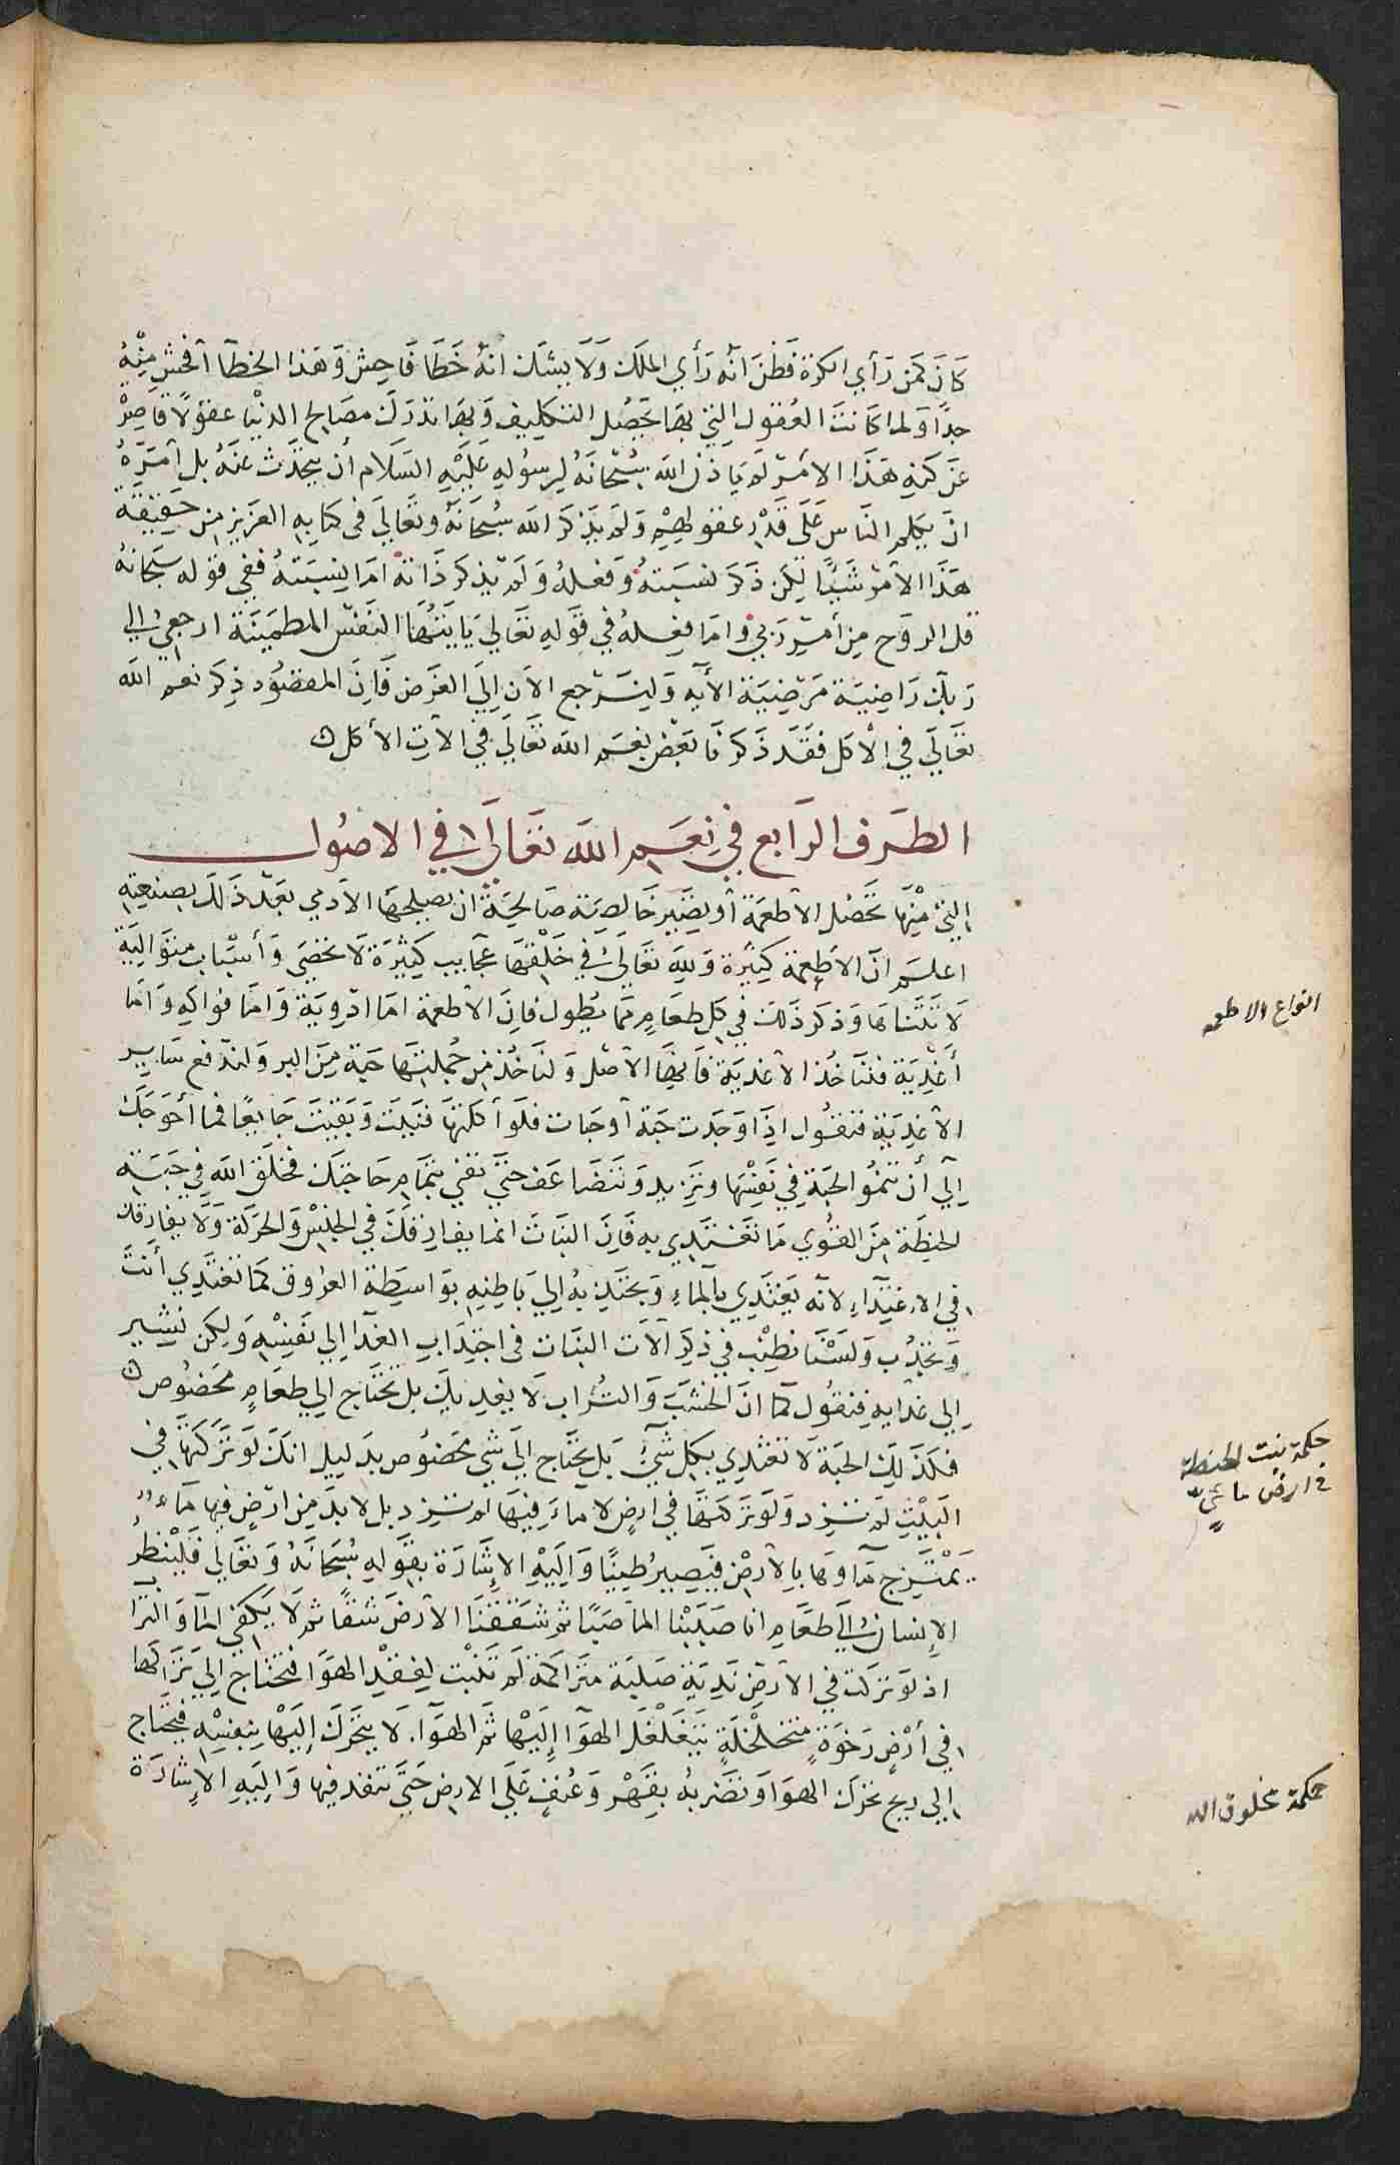 كان كمن رأي الكرة فظن انه رأي الملك ولا يشك انه خطا فاحش وهذا الخطا أفحش منه
جداً ولما كانت العقول التي بها يحصل التكليف وبها تدرك مصالح الدنيا عقولاً قاصرة
عن كنه هذا الأمر لم ياذن الله سبحانه لرسوله عليه السلام أن يتحدث عنه بل أمره
ان يكلم الناس على قدر عقولهم ولم يذكر الله سبحانه وتعالى في كتابه العزيز من حقيقة
هذا الأمر شيئاً لكن ذكر نسبته وفعله ولم يذكر ذاته اما نسبته ففي قوله سبحانه
قل الروح من أمر ربي واما فعله في قوله تعالى يايتها النفس المطمينة ارجعي الي
ربك راضية مرضية الآية ولنرجع الآن إلى الغرض فإن المقصود ذكر نعم الله
تعالى في الأكل فقد ذكرنا بعض نعم الله تعالى في آلات الأكل
الطرف الرابع في نعم الله تعالى في الاصول
التي منها تحصل الأطعمة أو تصير خالصة صالحة ان يصلحها الآدمي بعد ذلك بصنعته
اعلم ان الأطعمة كثيرة ولله تعالى في خلقها عجايب كثيرة لا تحصى وأسباب متوالية
لا تتناها وذكر ذلك في كل طعام مما يطول فإن الأطعمة اما ادوية واما فواكه واما
أغذية فنأخذ الأغذية فإنها الأصل ولنأخذ من جملتها حبة من البر ولندفع ساير
الأغذية فنقول اذا وجدت حبة أو حبات فلو أكلتها فنيت وبقيت جايعاً فما أحوجك
إلى أن تنمو الحبة في نفسها وتزيد وتتضاعف حتى تفي بتمام حاجتك فخلق الله في حبة
الحنطة من القوي ما تغتذي به فان النبات انما يفارقك في الحس والحركة ولا يفارقك
في الاغتذاء لأنه يغتذي بالماء ويجتذبه إلى باطنه بواسطة العروق كما تغتذي أنت
وتجذب ولسنا نطنب في ذكر آلات النبات في اجتذاب الغذا إلى نفسه ولكن نشير
إلى غذايه فنقول كما ان الخشب والتراب لا يغذيك بل تحتاج الي طعام مخصوص
فكذلك الحبة لا تغتذي بكل شيء بل تحتاج الى شي مخصوص بدليل انك لو تركتها في
البيت لم تزد ولو تركتها في ارض لا ماء فيها لم تزد بل لا بد من ارض فيها ماء
يمتزج ماوها بالأرض فيصير طيناً واليه الإشارة بقوله سبحانه وتعالى فلينظر
الإنسان الى طعامه انا صببنا الما صبًا ثم شققنا الأرض شقاً ثم لا يكفي الما والتراب
اذ لو تركت في الأرض ندية صلبة متراكمة لم تنبت لفقد الهوا فتحتاج الي تركها
في أرض رخوة متخلخلة يتغلغل الهوا إليها ثم الهوا لا يتحرك إليها بنفسه فيحتاج
الى ريح تحرك الهوا وتضربه بقهر وعنف على الارض حتى تنفذ فيها واليه الإشارة
انواع الاطعمه
حكمة نبت الحنطة
في ارض
حكمة مخلوق الله